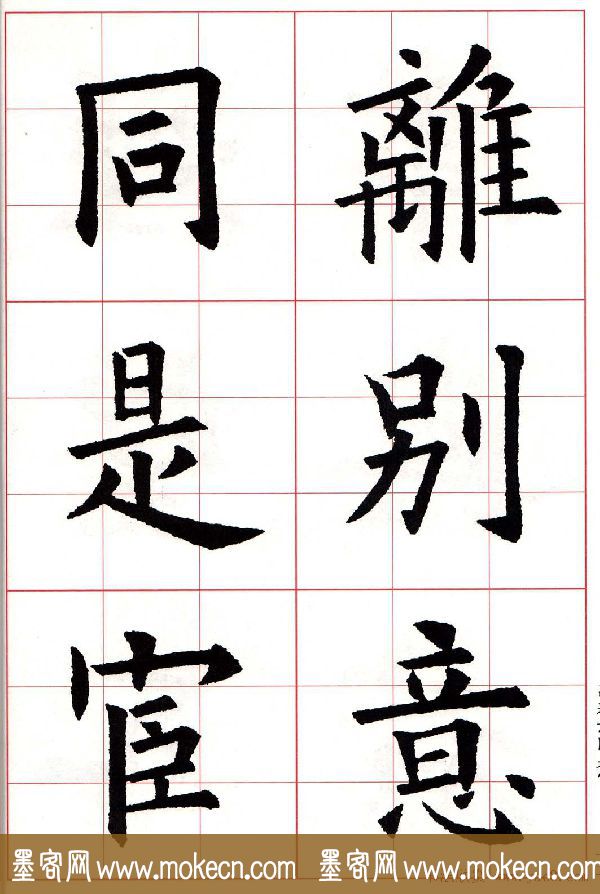 離別意
同是宦
墨客网 www.mokecn.com 墨客网 www.mokecn.com